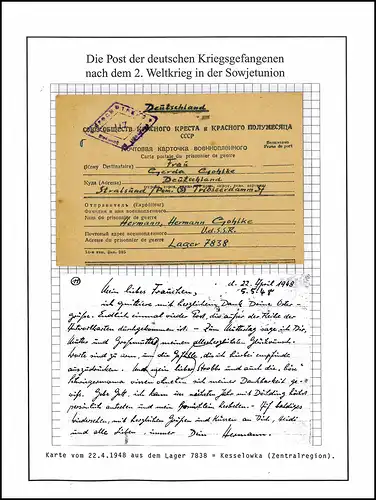 Die Post der deutschen Kriegsgefangenen
nach dem 2. Weltkrieg in der Sowjetunion
Deutschland
СОЮЗ ОБЩЕСТВ КРАСНОГО КРЕСТА и КРАСНОГО ПОЛУМЕСЯЦА
СССР
Почтовая карточка военнопленного
Carte postale du prisonnier de guerre
Бесплатно
Franc de port
Кому (Destinataire) Frau
Gerda Gohlke
Куда (Adresse) Deutschland
Stralsund / Pom. Tribseerdamm
Отправитель (Expéditeur)
Фамилия и имя военнопленного
Nom du prisonnier de guerre Hermann, Hermann Gohlke
Почтовый адрес военнопленного U.d.S.S.R.
Adresse du prisonnier de guerre Lager 7838
d. 22. April 1948
Mein liebes Frauchen, 5.5.48
ich quittiere mit herzlichem Dank Deine Oster-
grüße. Endlich einmal wieder Post, die außer der Reihe der
Antwortkarten durchgekommen ist. – Zum Muttertag sage ich Dir,
Mutter und Großmutter meinen allerherzlichsten Glückwunsch.
Worte sind zu arm, um die Gefühle, die ich hierbei empfinde
auszudrücken. Und mein lieber und auch die
Schwiegermama seien ohnehin meiner Dankbarkeit ge-
wiß. Gebe Gott, ich kann im nächsten Jahr mit
persönlich antreten und mein Auf baldiges
Wiedersehen, mit herzlichen Grüßen und Küssen an Dich, Heidi
und alle Lieben, immer Dein Hermann.
Karte vom 22.4.1948 aus dem Lager 7838 = Kesselowka (Zentralregion).